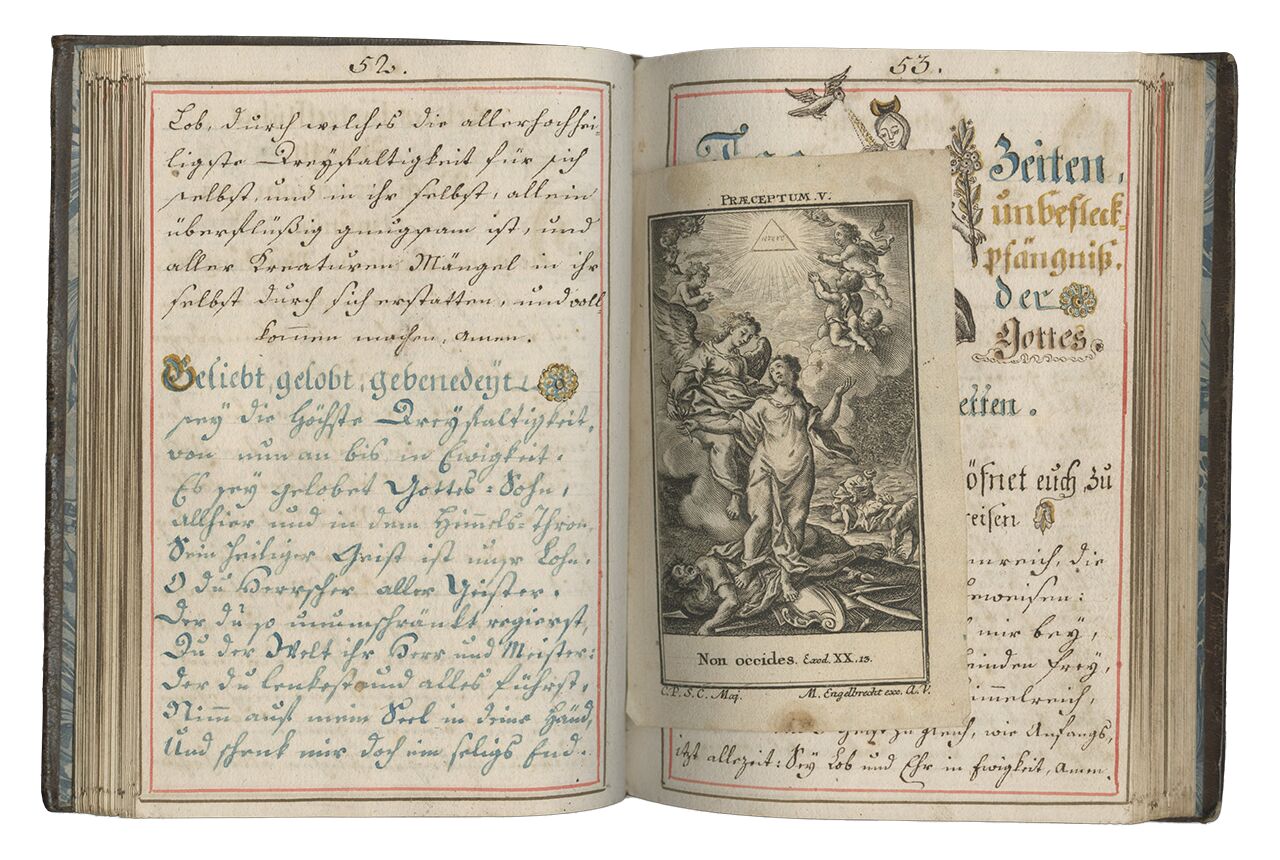 52.
Lob, durch welches die allerhochhei-
ligste Dreyfaltigkeit für sich
selbst, und in ihr selbst, allein
überflüßig gnugsam ist, und
aller Kreaturen Mängel in ihr
selbst durch sich erstatten, und voll-
kommen machen, Amen.
Geliebt, gelobt, gebenedeyt
sey die Höchste Dreyfaltigkeit,
von nun an bis in Ewigkeit.
Es sey gelobet Gottes-Sohn,
Allhier und in dem Himmels-Thron,
Sein Heiliger Geist ist unser Lohn.
O du Herrscher aller Geister.
Der du so unumschränkt regierst,
Du der Welt ihr Herr und Meister:
Der du lenkest und alles führst,
Nimm auf mein Seel in deine Händ,
Und schenk mir doch ein seligs End.
53.
Zeiten,
unbefleck-
pfängniß.
der
Gottes.
PRÆCEPTUM. V.
Non occides. Exod. XX. 13.
C. P. S. C. Maj.
M. Engelbrecht exc. A. V.
etten.
öfnet euch zu
eisen
nreich, die
eweisen:
mir bey,
inden frey,
immelreich,
gleich, wie Anfangs,
itzt allezeit: Sey Lob und Ehr in Ewigkeit, Amen.